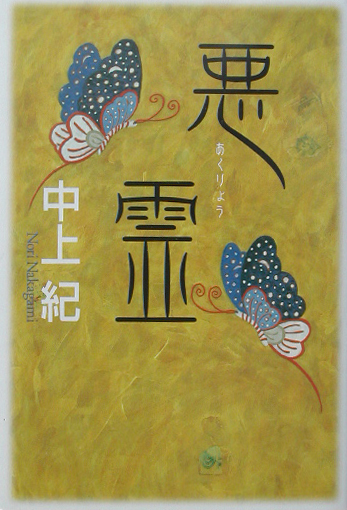 悪霊
あくりょう
中上紀
Nori Nakagami